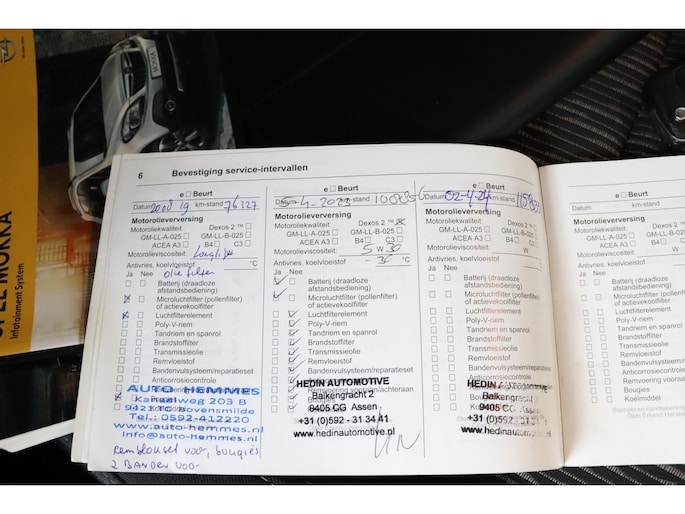 OPEL MOKKA
Infotainment System
6 Bevestiging service-intervallen
e □ Beurt
Datum km-stand 76327
Motorolieverversing
Motoroliekwaliteit: Dexos 2 ™ □
GM-LL-A-025 □ GM-LL-B-025 □
ACEA A3 □ B4 □ C3 □
Motorolieviscositeit:
Antivries, koelvloeistof °C
Ja Nee olie filter
Batterij (draadloze
afstandsbediening)
Microluchtfilter (pollenfilter)
of actievekoolfilter
Luchtfilterelement
Poly-V-riem
Tandriem en spanrol
Brandstoffilter
Transmissieolie
Remvloeistof
Bandenvulsysteem/reparatieset
Anticorrosiecontrole
AUTO HEMMES
Kanaalweg 203 B
9421 TC Bovensmilde
Tel.: 0592-412220
www.auto-hemmes.nl
info@auto-hemmes.nl
remblokset voor, bougies
2 BANDEN VOO-
e □ Beurt
Datum 5-4-2023 km-stand
Motorolieverversing
Motoroliekwaliteit: Dexos 2 ™
GM-LL-A-025 □ GM-LL-B-025 □
ACEA A3 □ B4 □ C3 □
Motorolieviscositeit: 5 W 30
Antivries, koelvloeistof -36 °C
Ja Nee
Batterij (draadloze
afstandsbediening)
Microluchtfilter (pollenfilter)
of actievekoolfilter
Luchtfilterelement
Poly-V-riem
Tandriem en spanrol
Brandstoffilter
Transmissieolie
Remvloeistof
Bandenvulsysteem/reparatieset
HEDIN AUTOMOTIVE
Balkengracht 2
9405 CG Assen
+31 (0)592 - 31 34 41
www.hedinautomotive.nl
e □ Beurt
Datum 02-4-24 km-stand
Motorolieverversing
Motoroliekwaliteit: Dexos 2 ™ □
GM-LL-A-025 □ GM-LL-B-025 □
ACEA A3 □ B4 □ C3 □
Motorolieviscositeit: W
Antivries, koelvloeistof °C
Ja Nee
Batterij (draadloze
afstandsbediening)
Microluchtfilter (pollenfilter)
of actievekoolfilter
Luchtfilterelement
Poly-V-riem
Tandriem en spanrol
Brandstoffilter
Transmissieolie
Remvloeistof
Bandenvulsysteem/reparatieset
Anticorrosiecontrole
Bougies
Koelmiddel
HEDIN
Balkengracht 2
9405 Assen
+31 (0)592
www.hedinautomotive.nl
e □ Beurt
Datum km-stand
Motorolieverversing
Motoroliekwaliteit:
GM-LL-A-025
ACEA A3 □
Motorolieviscositeit:
Antivries, koelvloeistof
Ja Nee
Batterij (draadloze
afstandsbediening)
Microluchtfilter
of actievekoolfilter
Luchtfilterelement
Poly-V-riem
Tandriem en spanrol
Brandstoffilter
Transmissieolie
Remvloeistof
Bandenvulsysteem
Anticorrosiecontrole
Bougies
Koelmiddel